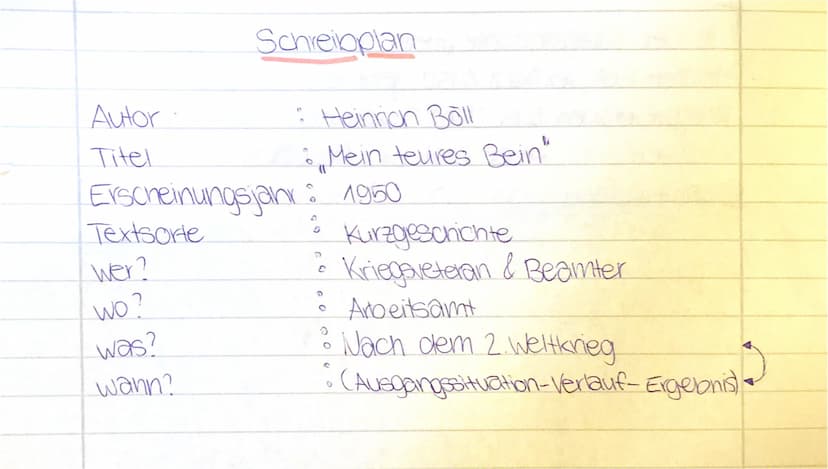 Schreibplan
Autor : Heinrich Böll
Titel : „Mein teures Bein"
Erscheinungsjahr : 1950
Textsorte : Kurzgeschichte
wer? : Kriegsveteran & Beamter
wo? : Arbeitsamt
was? : Nach dem 2. Weltkrieg
wann? : (Ausgangssituation-Verlauf-Ergebnis)